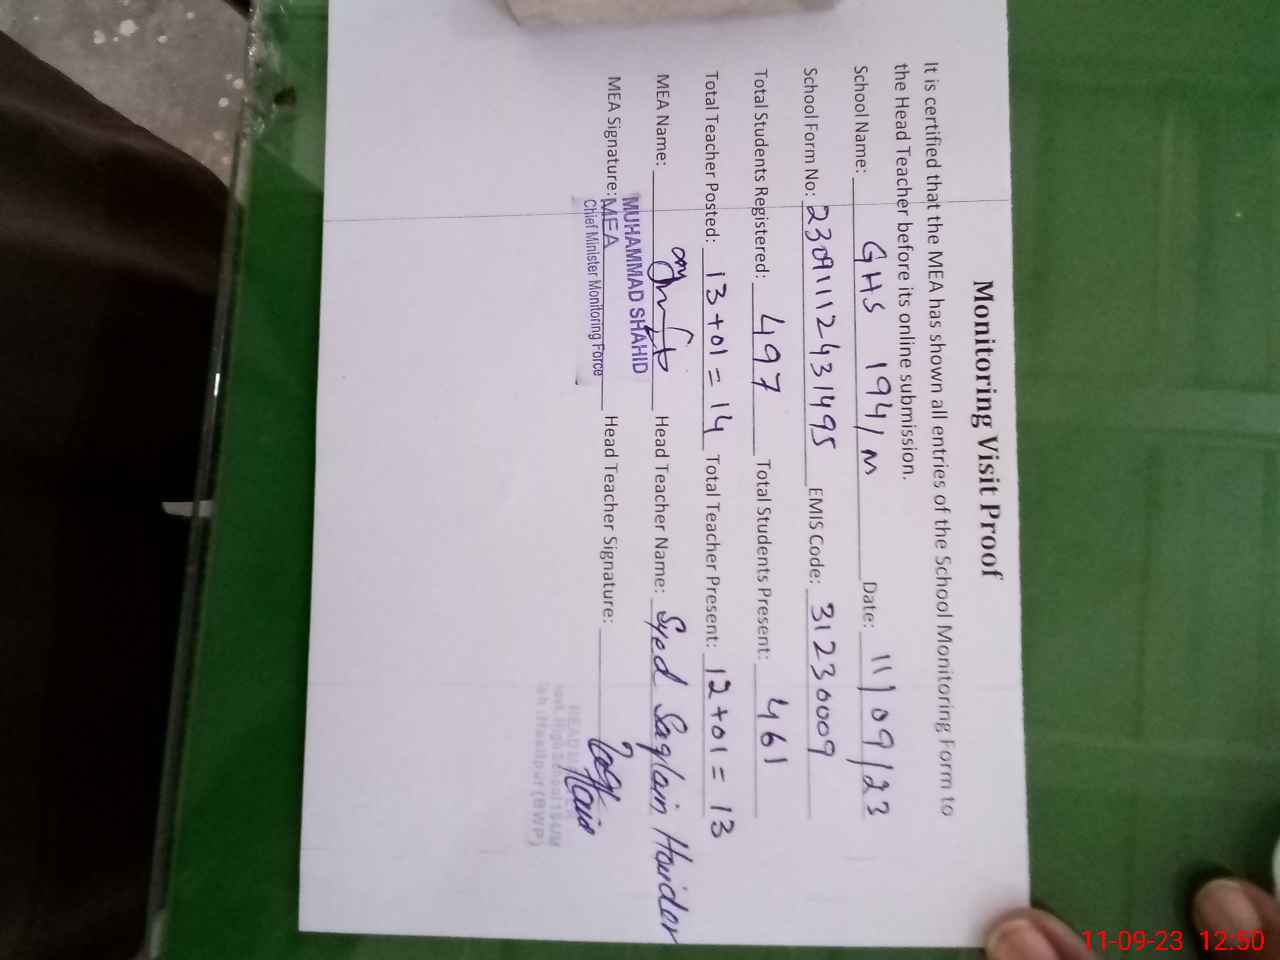 Monitoring Visit Proof
It is certified that the MEA has shown all entries of the School Monitoring Form to
the Head Teacher before its online submission.
School Name: GHS 194/M Date: 11/09/23
School Form No: 23091112431495 EMIS Code: 31230009
Total Students Registered: 497 Total Students Present: 461
Total Teacher Posted: 13+01=14 Total Teacher Present: 12+01=13
MEA Name: Head Teacher Name: Syed Saqlain Haider
MUHAMMAD SHAHID
MEA Signature: MEA Head Teacher Signature:
Chief Minister Monitoring Force
HEAD
(BWP)
11-09-23 12:50